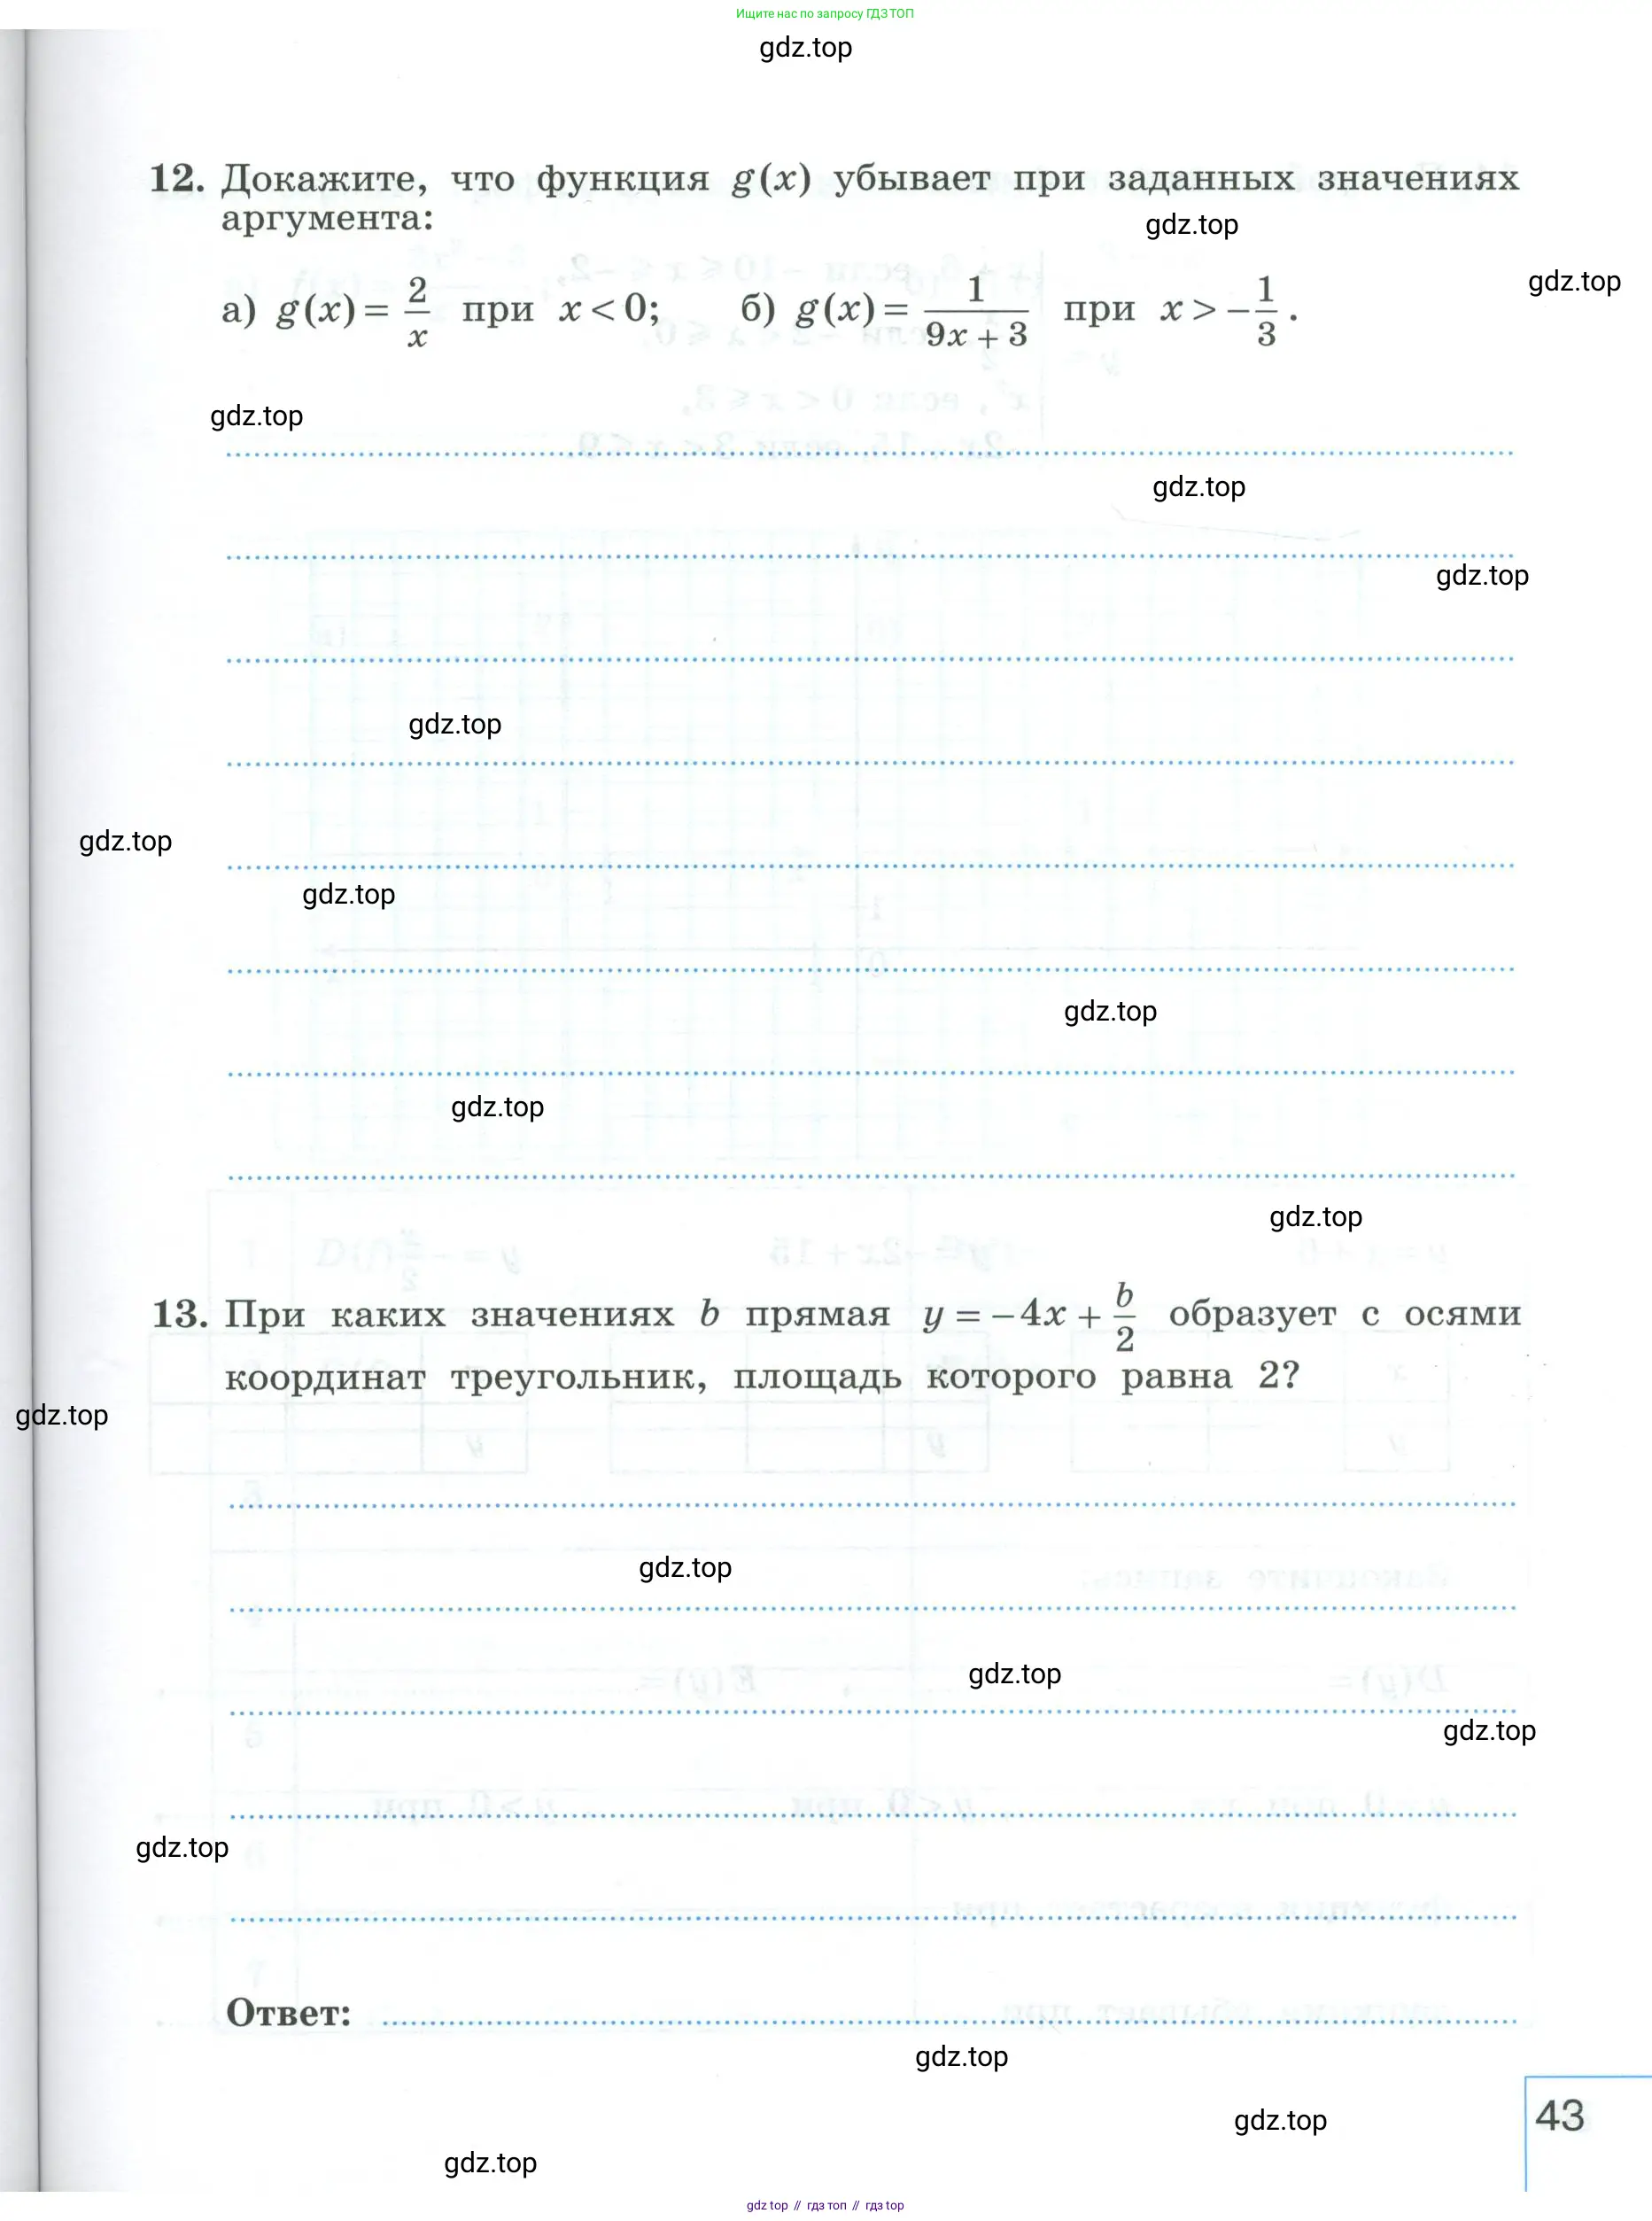 Ищите нас по запросу ГДЗ ТОП
gdz.top
12. Докажите, что функция g(x) убывает при заданных значениях
аргумента:
gdz.top
gdz.top
а) g(x) = 2/x при x < 0; б) g(x) = 1/(9x + 3) при x > −1/3.
gdz.top
gdz.top
gdz.top
gdz.top
gdz.top
gdz.top
gdz.top
gdz.top
gdz.top
13. При каких значениях b прямая y = −4x + b/2 образует с осями
координат треугольник, площадь которого равна 2?
gdz.top
gdz.top
gdz.top
gdz.top
gdz.top
Ответ:
gdz.top
gdz.top
43
gdz.top
gdz top // гдз топ // гдз top